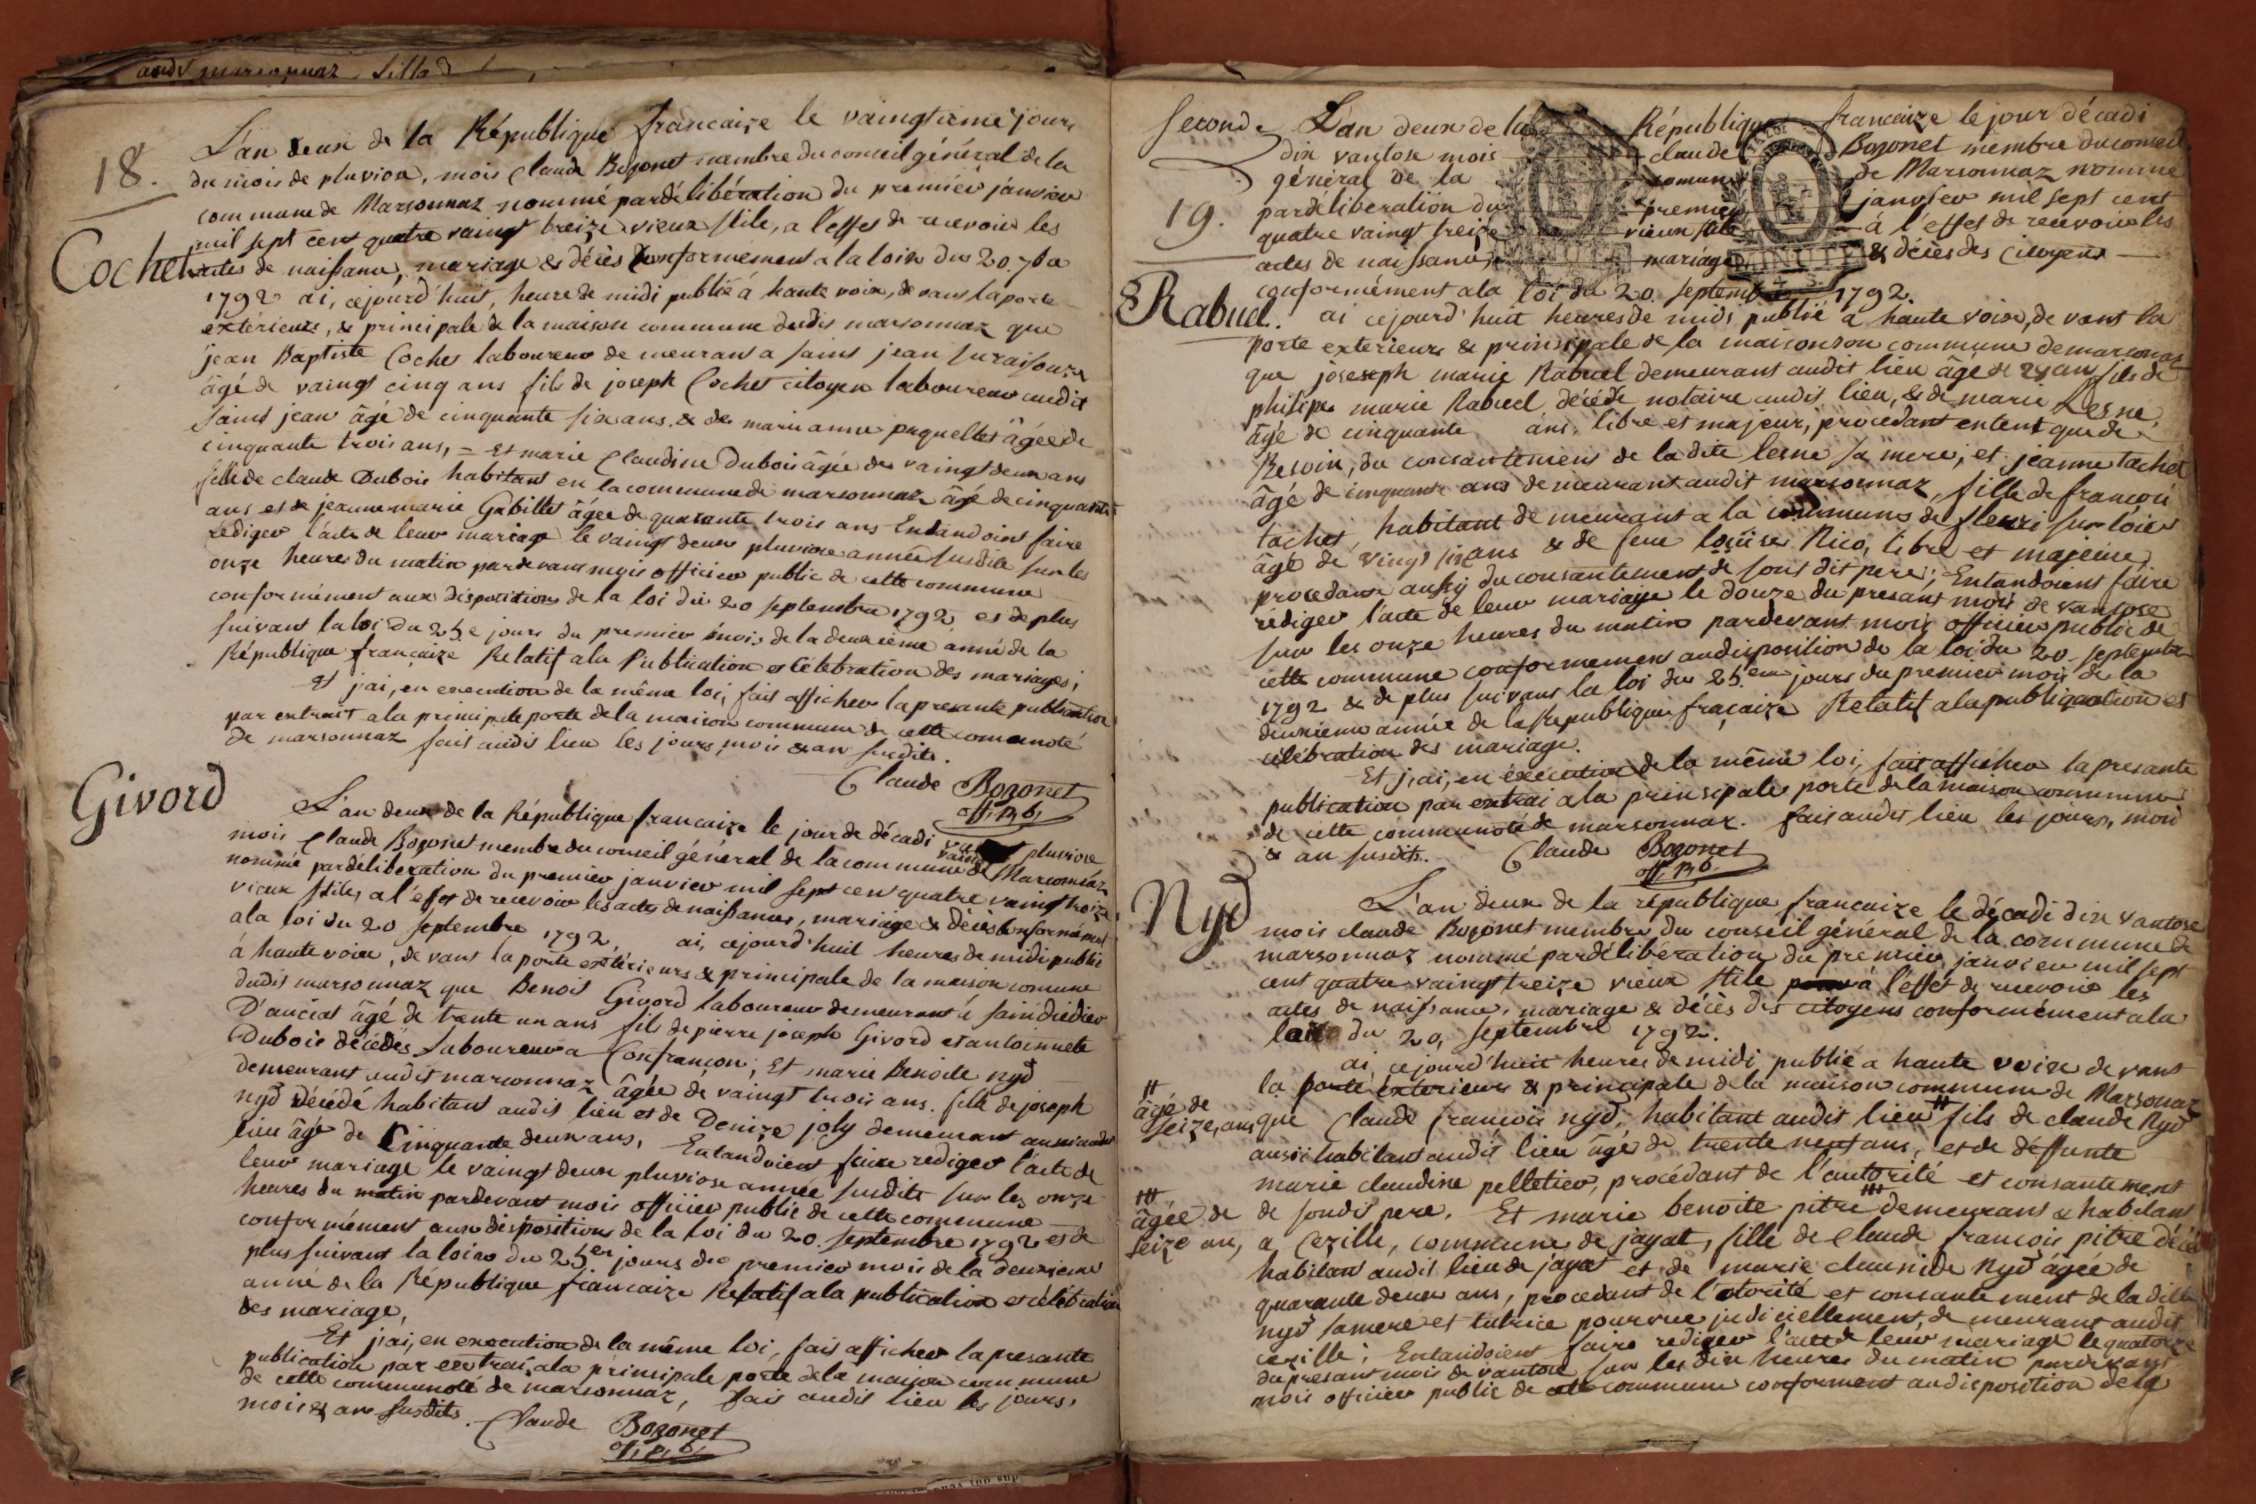 audit marsonnaz fille d
18.
L'an deux de la République francaize le vaingtieme jours
du mois de pluviose, mois Claude Bozonet membre du conseil général de la
commune de Marsonnaz nommé par délibération du premier janvier
mil sept cent quatre vaingt treize vieux stile, a l'effet de recevoir les
Cochet
actes de naissance, mariage & décès conformément a la loix du 20. 7bre
1792 ai, cejourd'huit, heure de midi publié á haute voix, de vant la porte
extérieurs, & principale de la maison commune dudit marsonnaz que
jean Baptiste Cochet laboureur de meurant a saint jean sur aisouze
âgé de vaingt cinq ans fils de joseph Cochet citoyen laboureur audit
saint jean âgé de cinquante six ans. & de marie anne puquellet âgée de
cinquante trois ans, = Et marie Claudine Dubois âgée de vaingt deux ans
fille de claude Dubois habitant en la commune de marsonnaz âgé de cinquante
ans et de jeanne marie Gabillet âgée de quarante trois ans Entandoint faire
rédiger l'acte de leur mariage le vaingt deux pluviose année susdite sur les
onze heures du matin pardevant mois officier public de cette commune
conformément aux dispositions de la loi du 20 septembre 1792 et de plus
suivant la loi du 25e jours du premier mois de la deuxieme anné de la
République françaize Relatif a la Publication et Celebration des mariages;
Et j'ai, en execution de la même loi, fait afficher la presante publication
par extrait a la principale porte de la maison commune de cette comunoté
de marsonnaz fait audit lieu les jours, mois & an susdits.
Claude Bozonet
off. Pub.
Givord
L'an deux de la République francaize le jour de décadi vaingt pluviose
mois Claude Bozonet membre du conseil général de la commune de Marsonnaz
nommé par déliberation du premier janvier mil sept cent quatre vaingt treize
vieux stile, a l'effet de recevoir les actes de naissances, mariage & décès conformément
a la loi du 20 septembre 1792, ai, cejourd'huit heures de midi publié
á haute voix, de vant la porte extérieurs & principale de la maison comune
dudit marsonnaz que Benoit Givord laboureur demeurant á saint didier
D'aussiat âgé de trente un ans fils de pierre joseph Givord et antoinnete
Dubois décédés Laboureur a Confrançon; Et marie Benoite nyd
demeurant audit marsonnaz âgée de vaingt trois ans. fille de joseph
nyd décédé habitant audit lieu et de Denize joly demeurant aussi audit
lieu âgé de Cinquante deux ans, Entandoient faire rediger l'acte de
leur mariage le vaingt deux pluviose année susdite sur les onze
heures du matin pardevant mois officier public de cette commune
conformément aux dispositions de la loi du 20. septembre 1792 et de
plus suivant la loi du 25er jours du premier mois de la deuxieme
anné de la République francaize Relatif a la publication et célébration
des mariage,
Et j'ai, en execution de la même loi, fait afficher la presante
publication par extrai, a la principale porte de la maison commune
de cette communoté de marsonnaz, fait audit lieu les jours,
mois & an susdits. Claude Bozonet
off. Pub.
Seconde
L'an deux de la République francaize le jour décadi
dix vantose mois claude Bozonet membre du conseil
général de la comune de Marsonnaz nommé
19.
par déliberation du premier janvier mil sept cent
quatre vaingt treize vieux stile á l'effet de recevoir les
actes de naissance, mariage & décès des Citoyens
conformément a la loi du 20. septembre 1792.
& Rabuel.
ai cejourd'huit heures de midi publié a haute voix, de vant la
porte exterieurs & principale de la maisonson commune de marsonnaz
que joseseph marie Rabuel demeurant audit lieu âgé de 29 an fils de
philipe marie Rabuel, décédé notaire audit lieu, & de marie Lesne
âgé de cinquante ans, libre et majeur, procedant entent que de
Besoin, du consantement de la dite lesne sa mere, et jeanne tachet
âgé de cinquante ans demeurant audit marsonnaz, fille de françois
tachet, habitant demeurant a la commune de fleuri sur loire
âgé de vingt six ans & de feue loüise Nico, libre et majeure,
procedant aussy du consantement de sont dit pere; Entandoient faire
rédiger l'acte de leur mariage le douze du presant mois de vantose
sur les onze heures du matin pardevant mois officier public de
cette commune conformement audisposition de la loi du 20. septembre
1792 & de plus suivant la loi du 25.eme jours du premier mois de la
deuxieme année de la République fraçaize Relatif a la publiquation et
célébration des mariage.
Et j'ai, en éxecution de la même loi, fait afficher la presante
publication par extrai a la principale porte de la maison commune
de cette communoté de marsonnaz. fait audit lieu les jours, mois
& an susdits. Claude Bozonet
off. Pub.
Nyd
L'an deux de la république francaize le décadi dix vantose
mois claude Bozonet membre du conseil général de la commune de
marsonnaz nommé par délibération du premier janvier mil sept
cent quatre vaingt treize vieux stile á l'éffet de recevoir les
actes de naissance, mariage & décès des citoyens conformément a la
loi du 20, septembre 1792.
ai, cejourd'huit heures de midi publié a haute voix de vant
la porte exterieurs & principale de la maison commune de Marsonnaz
âgé de
seize, ans
que Claude francois nyd, habitant audit lieu fils de claude Nyd
aussi habitant audit lieu âgé de trente neuf ans, et de déffunte
marie claudine pelletier, procédant de l'autorité et consantement
âgée de
seize an,
de sondit pere. Et marie benoite pitre demeurant & habitant
a Cezille, commune de jayat, fille de Claude françois pitre décédé
habitant audit lieu de jayat et de marie claunide Nyd âgée de
quarante deux ans, procedant de l'otorité et consante ment de la dite
nyd sa mere et tutrice pourvue judiciellement, de meurant audit
cezille; Entandoient faire rediger l'acte de leur mariage le quatorze
du presant mois de vantose sur les dix heures du matin pardevant
mois officier public de cette commune conforment au disposition de la